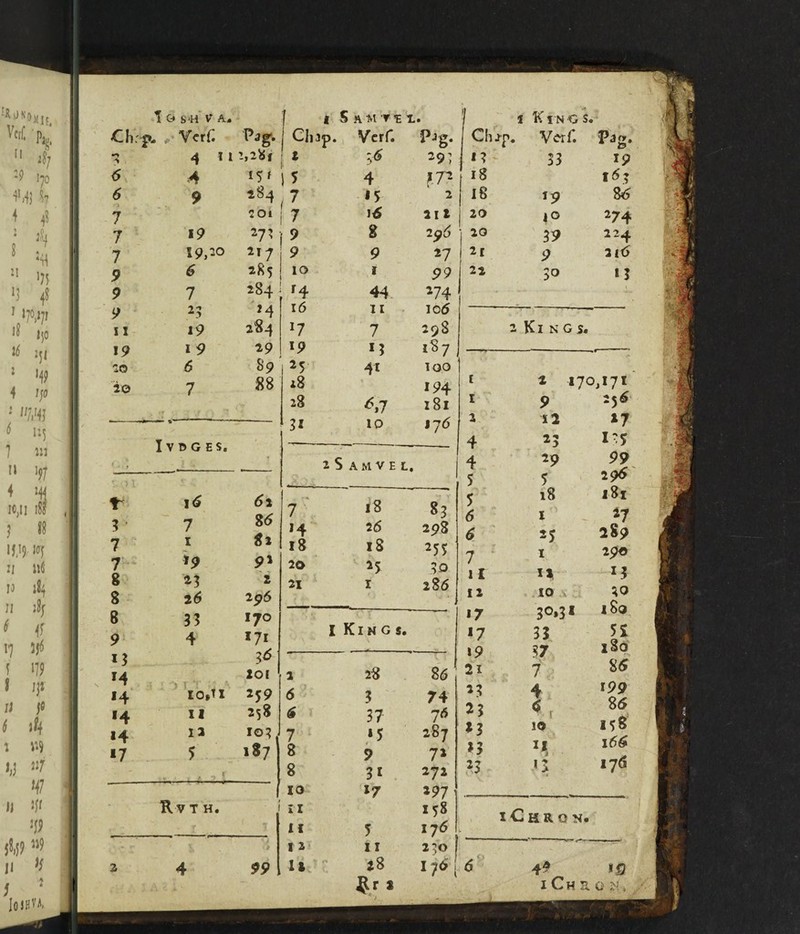 IOSHVA.
Chap. Verf. Pag.
4 112,281
6 4 151
6 9 284
7 201
7 19 273
7 19,20 217
9 6 285
9 7 284
9 23 24
11 19 284
19 19 29
20 6 89
20 7 88
IVDGES.
1 16 62
3 7 86
7 1 82
7 19 92
8 23 2
8 26 296
8 33 170
9 4 171
13 36
14 201
14 10,11 259
14 11 258
14 12 103
17 5 187
RVTH.
2 4 99
1 SAMVEL.
Chap. Verf. Pag.
2 36 293
5 4 172
7 15 2
7 16 212
9 8 296
9 9 27
10 1 99
14 44 274
16 11 106
17 7 298
19 13 187
25 41 100
28 194
28 6,7 181
31 10 176
2 SAMVEL.
7 18 83
14 26 298
18 18 255
20 25 30
21 1 286
1 KINGS.
2 28 86
6 3 74
6 37 76
7 15 287
8 9 72
8 31 272
10 17 297
11 158
11 5 176
12 11 230
12 28 176
Rr 2
1 KINGS.
Chap. Verf. Pag.
13 33 19
18 163
18 19 86
20 10 274
20 39 224
21 9 216
22 30 13
2 KINGS.
1 2 170,171
1 9 256
2 12 27
4 23 125
4 29 99
5 5 296
5 18 181
6 1 27
6 25 289
7 1 290
11 12 13
12 10 30
17 30,31 180
17 33 55
19 37 180
21 7 86
23 4 199
23 6 86
23 10 158
23 11 166
23 13 176
1 CHRON.
6 19
1 CHRON.